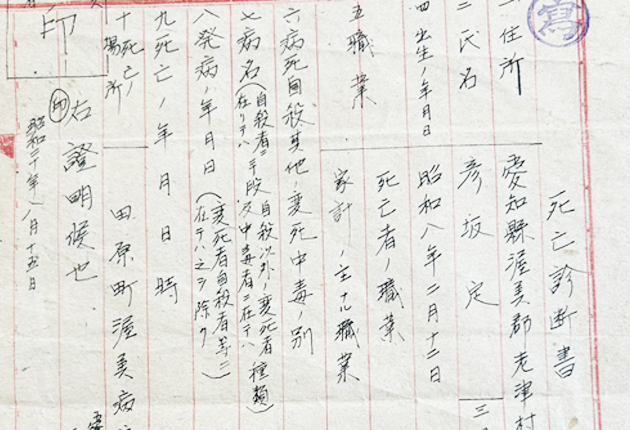 寫
死亡診断書
一住所 愛知縣渥美郡老津村
二氏名 彦坂定 三
四出生ノ年月日 昭和八年二月十二日
五職業 死亡者ノ職業
家計ノ主ナル職業
六病死自殺其他ノ変死中毒ノ別
七病名(自殺者ニ在リテハ手段自殺以外ノ変死者及中毒者ニ在テハ種類)
八発病ノ年月日(変死者自殺者等ニ在テハ之ヲ除ク)
九死亡ノ年月日時
十死亡ノ場所 田原町渥美病
右證明候也
昭和二十年八月十五日
印
印